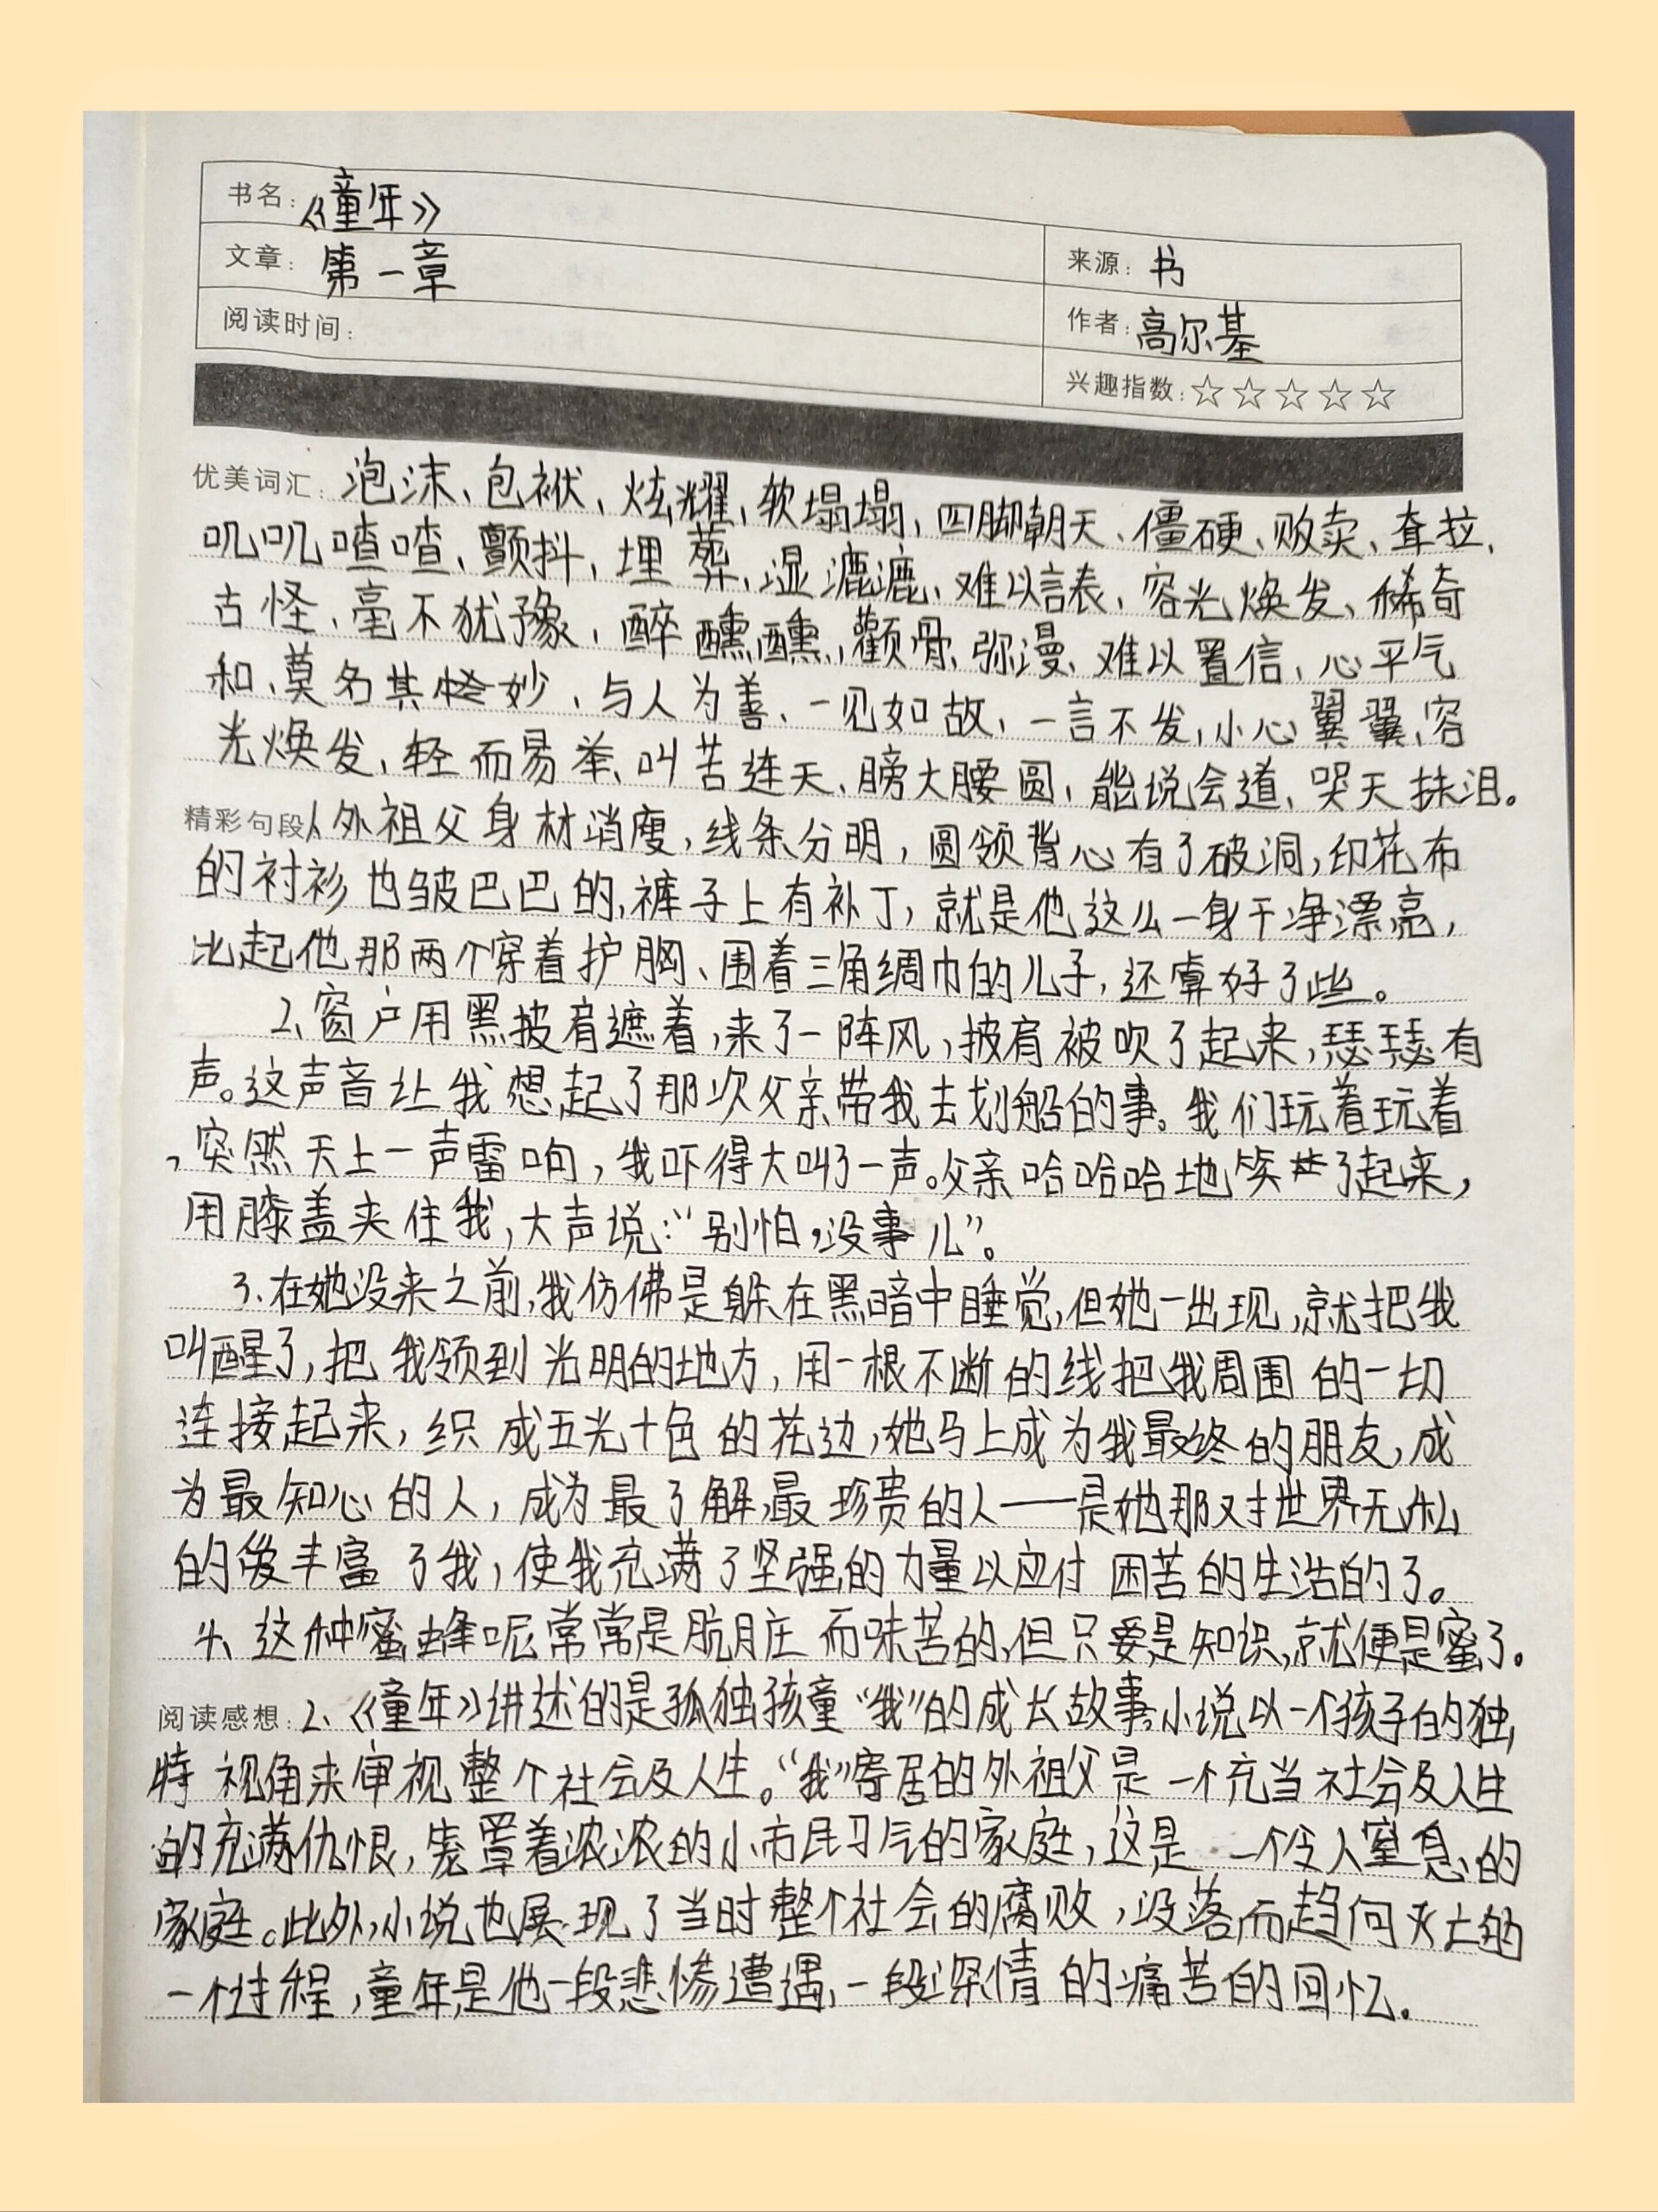 书名：《童年》
文章：第一章
来源：书
阅读时间：
作者：高尔基
兴趣指数：☆☆☆☆☆
优美词汇：泡沫、包袱、炫耀、软塌塌、四脚朝天、僵硬、败卖、耷拉、
叽叽喳喳、颤抖、埋葬、湿漉漉、难以言表、容光焕发、稀奇
古怪、毫不犹豫、醉醺醺、颧骨、弥漫、难以置信、心平气
和、莫名其妙、与人为善、一见如故、一言不发、小心翼翼、容
光焕发、轻而易举、叫苦连天、膀大腰圆、能说会道、哭天抹泪。
精彩句段：1、外祖父身材消瘦，线条分明，圆领背心有了破洞，印花布
的衬衫也皱巴巴的，裤子上有补丁，就是他这么一身干净漂亮，
比起他那两个穿着护胸、围着三角绸巾的儿子，还算好了些。
2、窗户用黑披肩遮着，来了一阵风，披肩被吹了起来，瑟瑟有
声。这声音让我想起了那次父亲带我去划船的事。我们玩着玩着
，突然天上一声雷响，我吓得大叫了一声。父亲哈哈哈地笑了起来，
用膝盖夹住我，大声说：“别怕，没事儿”。
3、在她没来之前，我仿佛是躲在黑暗中睡觉，但她一出现，就把我
叫醒了，把我领到光明的地方，用一根不断的线把我周围的一切
连接起来，织成五光十色的花边，她马上成为我最终的朋友，成
为最知心的人，成为最了解，最珍贵的人——是她那对世界无私
的爱丰富了我，使我充满了坚强的力量以应付困苦的生活的了。
4、这种蜜蜂呢常常是肮月庄而味苦的，但只要是知识，就便是蜜了。
阅读感想：2、《童年》讲述的是孤独孩童“我”的成长故事，小说以一个孩子的独
特视角来审视整个社会及人生。“我”寄居的外祖父是一个充当社会及人生
的充满仇恨，笼罩着浓浓的小市民习气的家庭，这是一个令人窒息的
家庭。此外，小说也展现了当时整个社会的腐败，没落而趋向灭亡的
一个过程，童年是他一段悲惨遭遇，一段深情的痛苦的回忆。